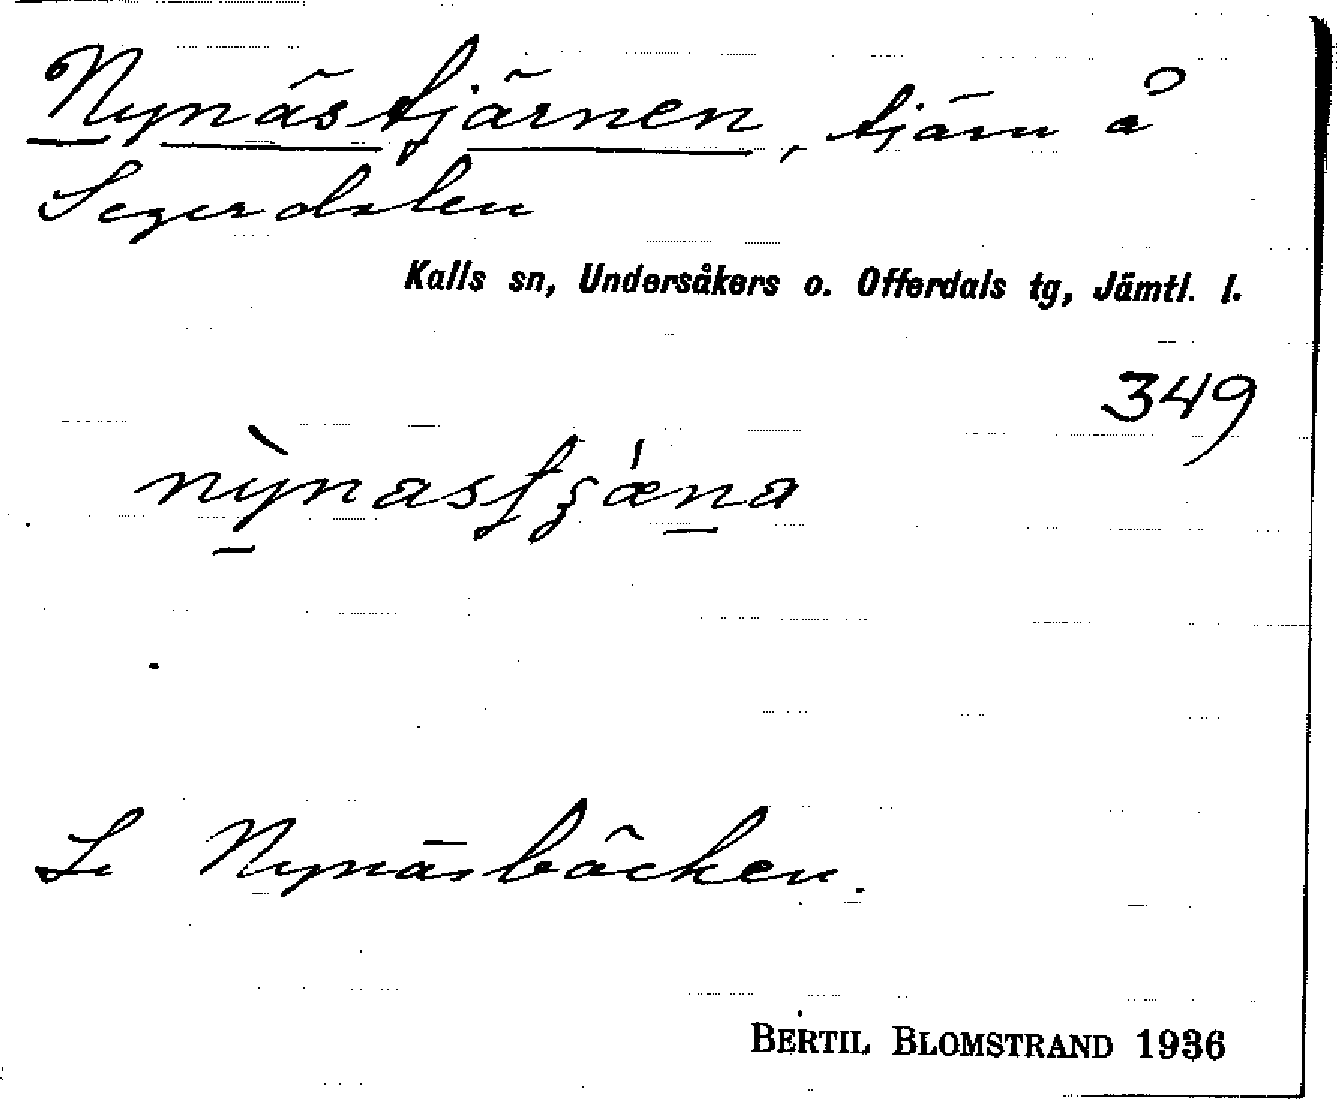 Nynästjärnen, tjärn å
Segerdalen
Kalls sn, Undersåkers o. Offerdals tg, Jämtl. l.
349
Se Nynäsbäcken.
BERTIL BLOMSTRAND 1936